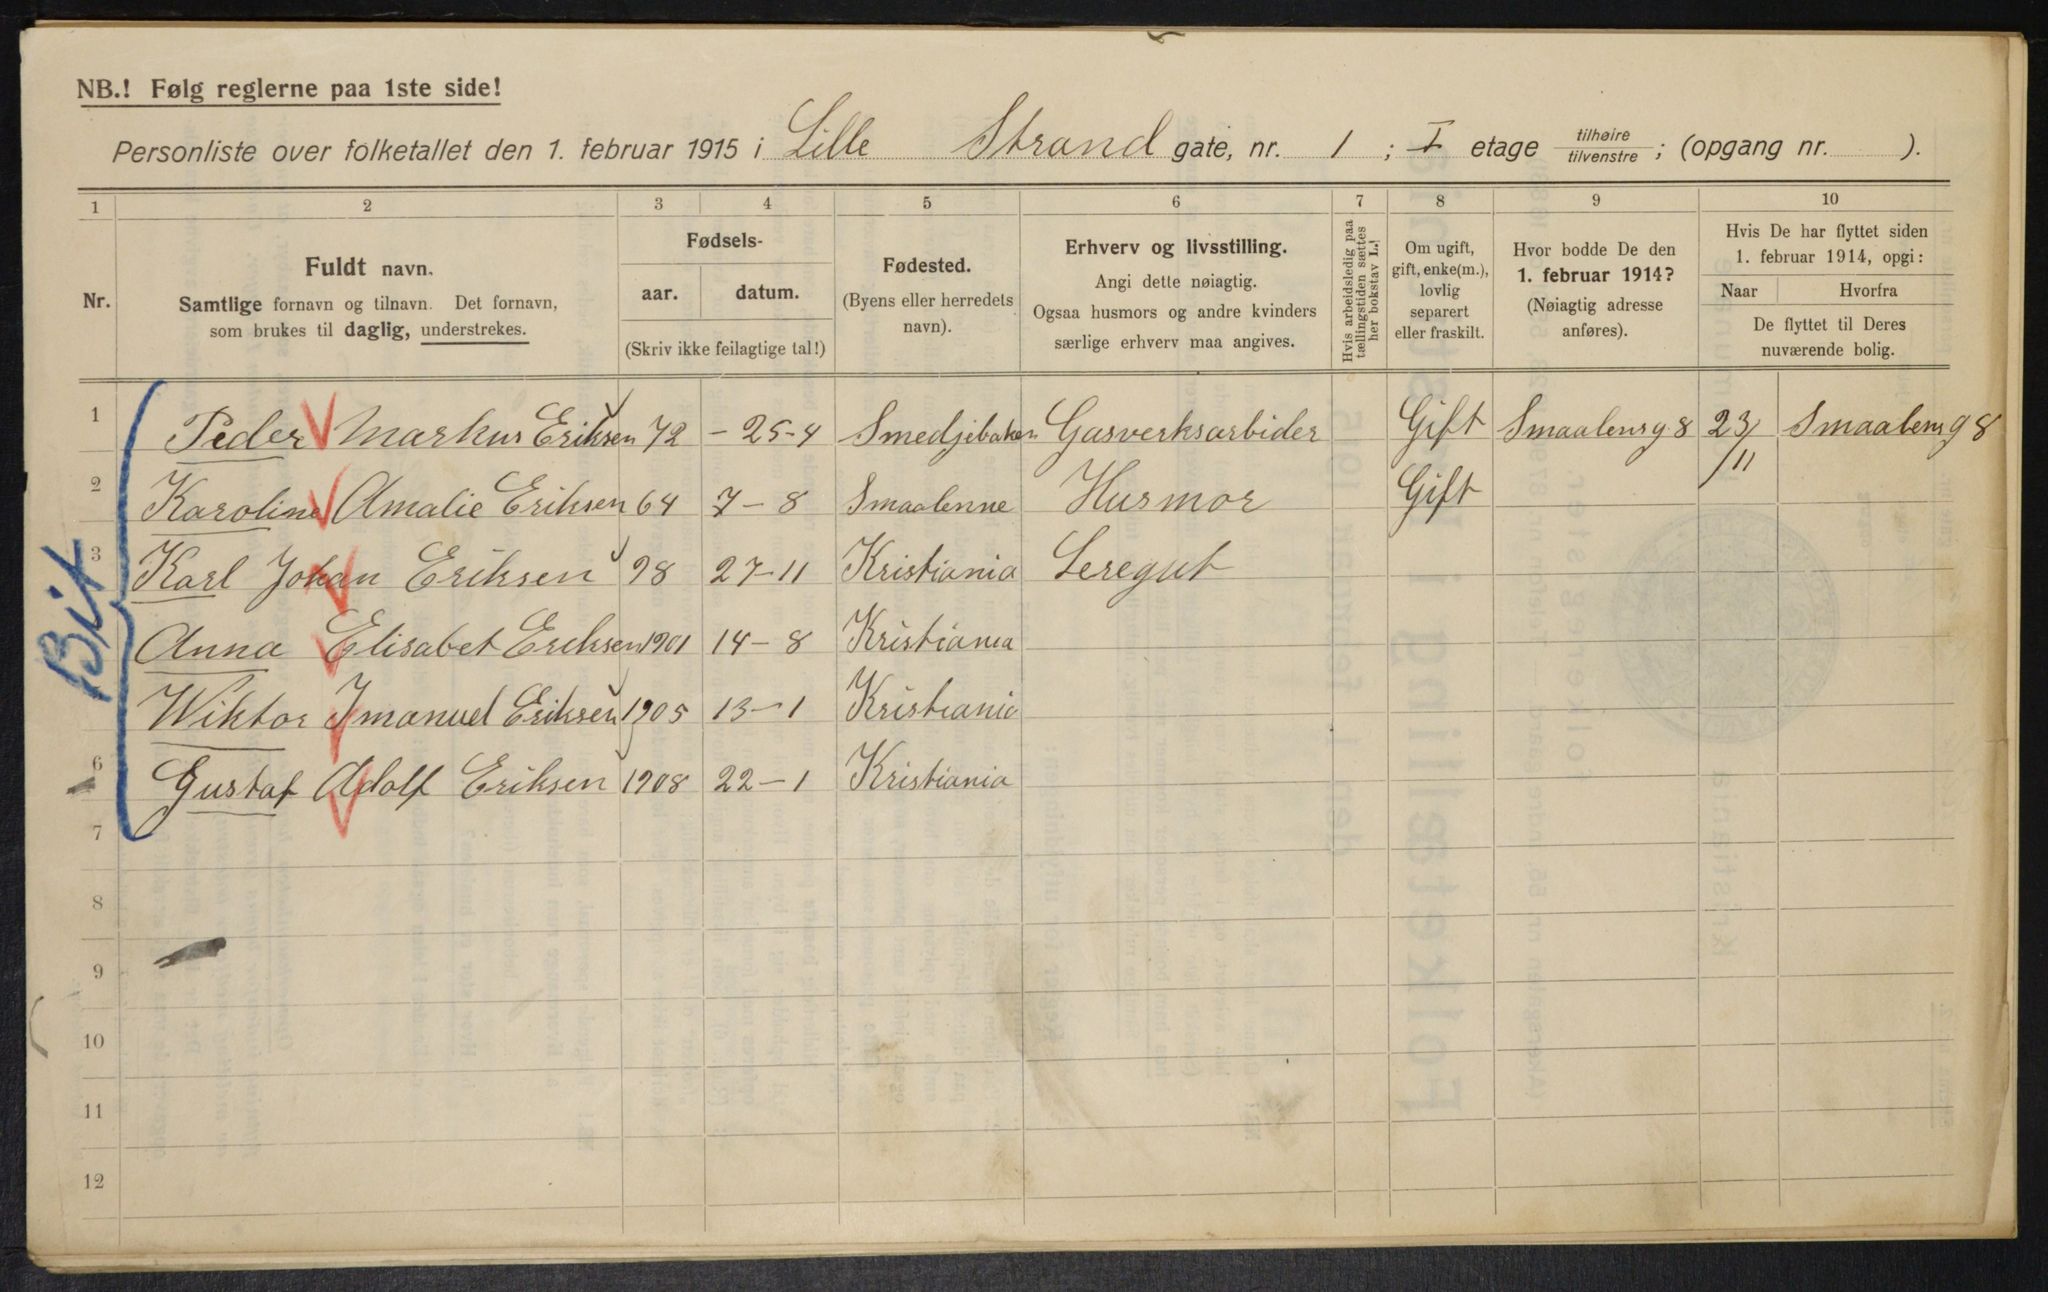 NB.! Følg reglerne paa 1ste side!
Personliste over folketallet den 1. februar 1915 i Lille Strand gate, nr. 1 ; I etage tilhøire tilvenstre ; (opgang nr. ).
1 2 3 4 5 6 7 8 9 10
Nr.
Fuldt navn.
Samtlige fornavn og tilnavn. Det fornavn,
som brukes til daglig, understrekes.
Fødsels-
aar. datum.
(Skriv ikke feilagtige tal!)
Fødested.
(Byens eller herredets
navn).
Erhverv og livsstilling.
Angi dette nøiagtig.
Ogsaa husmors og andre kvinders
særlige erhverv maa angives.
Hvis arbeidsledig paa
tællingstiden sættes
her bokstav L.!
Om ugift,
gift, enke(m.),
lovlig
separert
eller fraskilt.
Hvor bodde De den
1. februar 1914?
(Nøiagtig adresse
anføres).
Hvis De har flyttet siden
1. februar 1914, opgi:
Naar Hvorfra
De flyttet til Deres
nuværende bolig.
1 Peder Markus Eriksen 72 – 25-4 Smedjebaken Gasverksarbider Gift Smaalensg 8 23/11 Smaalensg 8
2 Karoline Amalie Eriksen 64 7 – 8 Smaalenne Husmor Gift
3 Karl Johan Eriksen 98 27-11 Kristiania Leregut
Anna Elisabet Eriksen 1901 14 – 8 Kristiania
Wiktor Imanuel Eriksen 1905 13 – 1 Kristiania
6 Gustaf Adolf Eriksen 1908 22 – 1 Kristiania
7
8
9
10
11
12